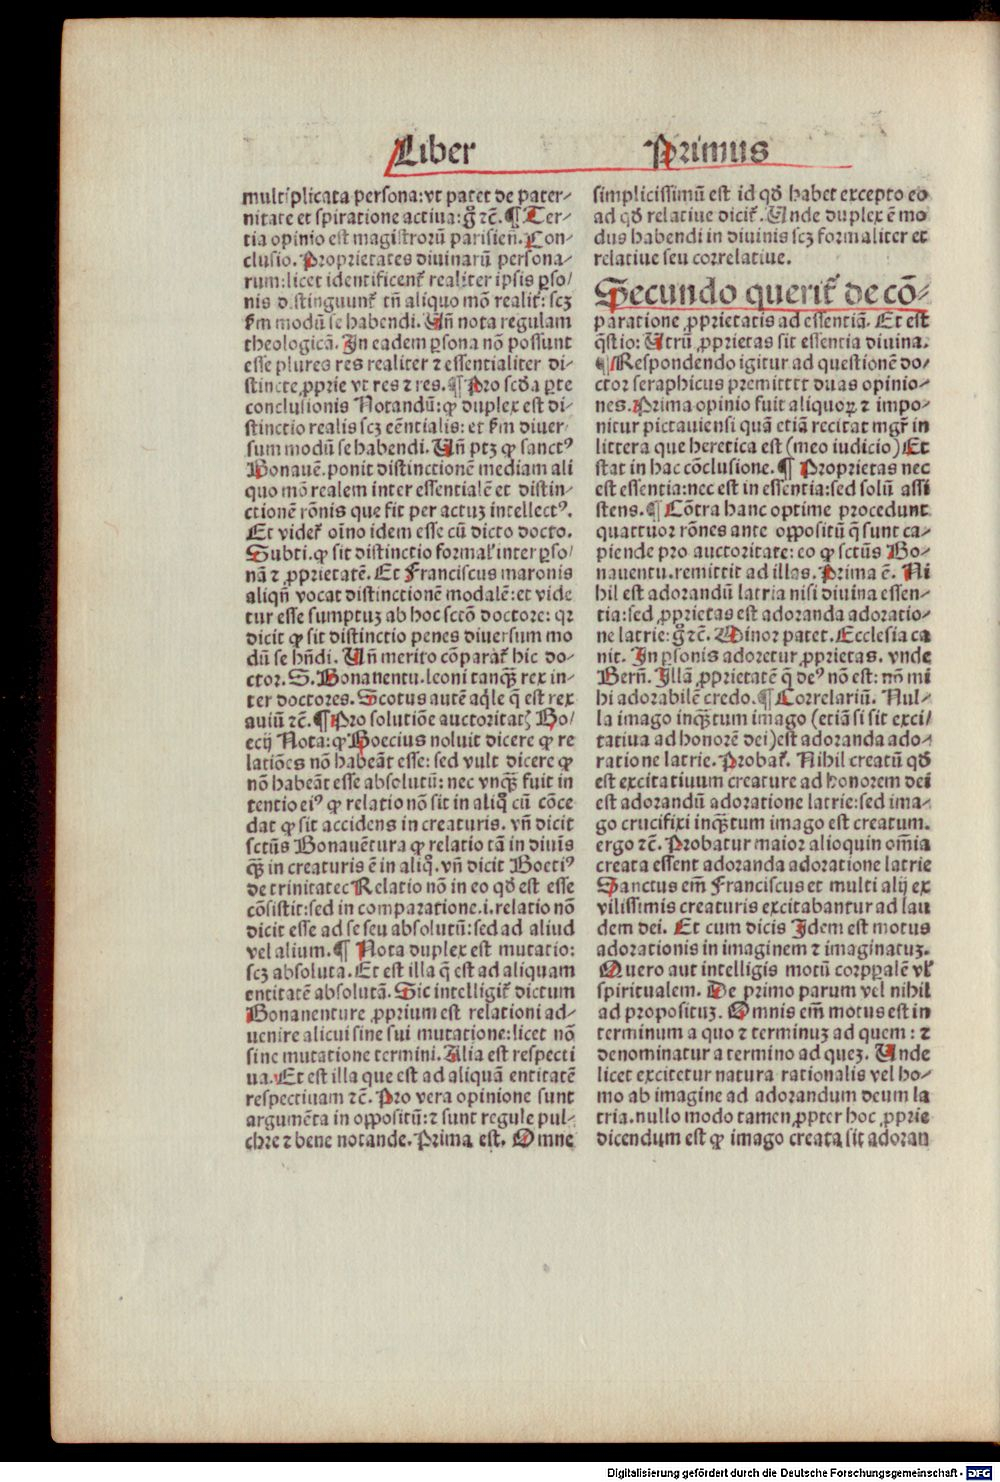 Liber Primus
multiplicata persona: vt patet de pater⸗
nitate et spiratione actiua: gͦ ꝛc̄. ¶ Ter⸗
tia opinio est magistrorū parisien̄. Con⸗
clusio. Proprietates diuinarū persona⸗
rum: licet identificent᷑ realiter ipsis ꝑso⸗
nis distinguunt᷑ tn̄ aliquo mō realit᷑: scꝫ
ẜm modū se habendi. Vn̄ nota regulam
theologicā. In eadem ꝑsona nō possunt
esse plures res realiter ⁊ essentialiter di⸗
stincte ꝓprie vt res ⁊ res. ¶ Pro scd̄a ꝑte
conclusionis Notandū: ꝙ duplex est di⸗
stinctio realis scꝫ eēntialis: et ẜm diuer⸗
sum modū se habendi. Vn̄ ptꝫ ꝙ sanctꝰ
Bonauē. ponit distinctionē mediam ali
quo mō realem inter essentialē et distin⸗
ctionē rōnis que fit per actuꝫ intellectꝰ.
Et videt᷑ oīno idem esse cū dicto docto.
Subti. ꝙ sit distinctio formal᷑ inter ꝑso⸗
nā ⁊ ꝓprietatē. Et Franciscus maronis
aliqn̄ vocat distinctionē modalē: et vide
tur esse sumptuꝫ ab hoc sctō doctore: qꝛ
dicit ꝙ sit distinctio penes diuersum mo
dū se hn̄di. Vn̄ merito cōparat᷑ hic do⸗
ctor. S. Bonanentu. leoni tanqꝫ rex in⸗
ter doctores. Scotus autē aq̄le q̄ est rex
auiū ꝛcē. ¶ Pro solutiōe auctoritatꝭ Bo⸗
ecij Nota: ꝙ Boecius noluit dicere ꝙ re
latiōes nō habeāt esse: sed vult dicere ꝙ
nō habeāt esse absolutū: nec vnqꝫ fuit in
tentio eiꝰ ꝙ relatio nō sit in aliqͦ cū cōce
dat ꝙ sit accidens in creaturis. vn̄ dicit
sctūs Bonauētura ꝙ relatio tā in diuis
qꝫ in creaturis ē in aliqͦ. vn̄ dicit Boetiꝰ
de trinitatec Relatio nō in eo qd̄ est esse
cōsistit: sed in comparatione .i. relatio nō
dicit esse ad se seu absolutū: sed ad aliud
vel alium. ¶ Nota duplex est mutatio:
scꝫ absoluta. Et est illa q̄ est ad aliquam
entitatē absolutā. Sic intelligit᷑ dictum
Bonanenture ꝓprium est relationi ad⸗
uenire alicui sine sui mutatione: licet nō
sine mutatione termini. Alia est respecti
ua. Et est illa que est ad aliquā entitatē
respectiuam ꝛcē. Pro vera opinione sunt
argumēta in oppositū: ⁊ sunt regule pul⸗
chre ⁊ bene notande. Prima est. Omne
simplicissimū est id qd̄ habet excepto eo
ad qd̄ relatiue dicit᷑. Unde duplex ē mo
dus habendi in diuinis scꝫ formaliter et
relatiue seu correlatiue.
Secundo querit᷑ de cō⸗
paratione ꝓprietatis ad essentiā. Et est
q̄stio: Utrū ꝓprietas sit essentia diuina.
¶ Respondendo igitur ad questionē do⸗
ctor seraphicus premittit duas opinio⸗
nes. Prima opinio fuit aliquoꝝ ⁊ impo⸗
nitur pictauiensi quā etiā recitat mgr̄ in
littera que heretica est (meo iudicio) Et
stat in hac cōclusione. ¶ Proprietas nec
est essentia: nec est in essentia: sed solū assi
stens. ¶ Cōtra hanc optime procedunt
quattuor rōnes ante oppositū q̄ sunt ca⸗
piende pro auctoritate: eo ꝙ sctūs Bo⸗
nauentu. remittit ad illas. Prima ē. Ni
hil est adorandū latria nisi diuina essen⸗
tia: sed ꝓprietas est adoranda adoratio⸗
ne latrie: gͦ ꝛcē. Minor patet. Ecclesia ca
nit. In ꝑsonis adoretur ꝓprietas. vnde
Bern̄. Illā ꝓprietatē q̄ deꝰ nō est: nō mi
hi adorabilē credo. ¶ Correlariū. Nul⸗
la imago inqꝫtum imago (etiā si sit exci⸗
tatiua ad honorē dei) est adoranda ado⸗
ratione latrie. Probat᷑. Nihil creatū qd̄
est excitatiuum creature ad honorem dei
est adorandū adoratione latrie: sed ima⸗
go crucifixi inqꝫtum imago est creatum.
ergo ꝛcē. Probatur maior alioquin om̄ia
creata essent adoranda adoratione latrie
Sanctus em̄ Franciscus et multi alij ex
vilissimis creaturis excitabantur ad lau
dem dei. Et cum dicis Idem est motus
adorationis in imaginem ⁊ imaginatuꝫ.
Quero aut intelligis motū corꝑalē vl᷑
spiritualem. De primo parum vel nihil
ad proposituꝫ. Omnis em̄ motus est in
terminum a quo ⁊ terminuꝫ ad quem: ⁊
denominatur a termino ad queꝫ. Unde
licet excitetur natura rationalis vel ho⸗
mo ab imagine ad adorandum deum la
tria. nullo modo tamen ꝓpter hoc ꝓprie
dicendum est ꝙ imago creata sit adoran
Digitalisierung gefördert durch die Deutsche Forschungsgemeinschaft - DFG